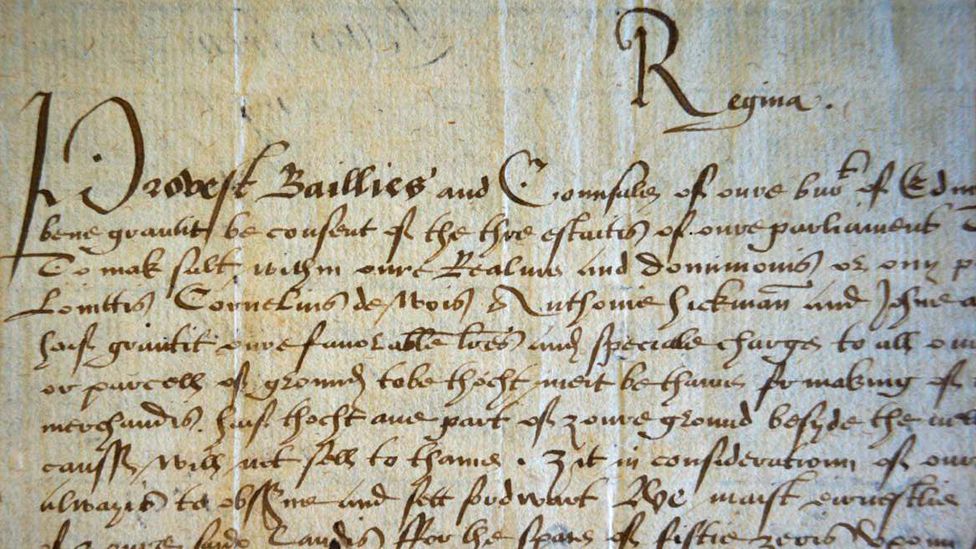 Regina.
Provest Baillies and Counsales of oure burt of Edin
bene grantit be consent of the thre estaitis of oure parliament
To mak salt within oure Realme and dominionis or ony p
Cornelius de Wois & Anthonie hickman and Johne
hais grantit oure favorable lres and speciale charge to all our
or parcell of ground tobe thocht meit be thame for making of
merchandis. hais thocht ane part of zoure ground besyde the
causs will not sell to thame. zit in consideratioun of our
alwayis to observe and sett fordwart We maist ernestlie
of zoure saidis Landis ffor the space of fiftie zeris